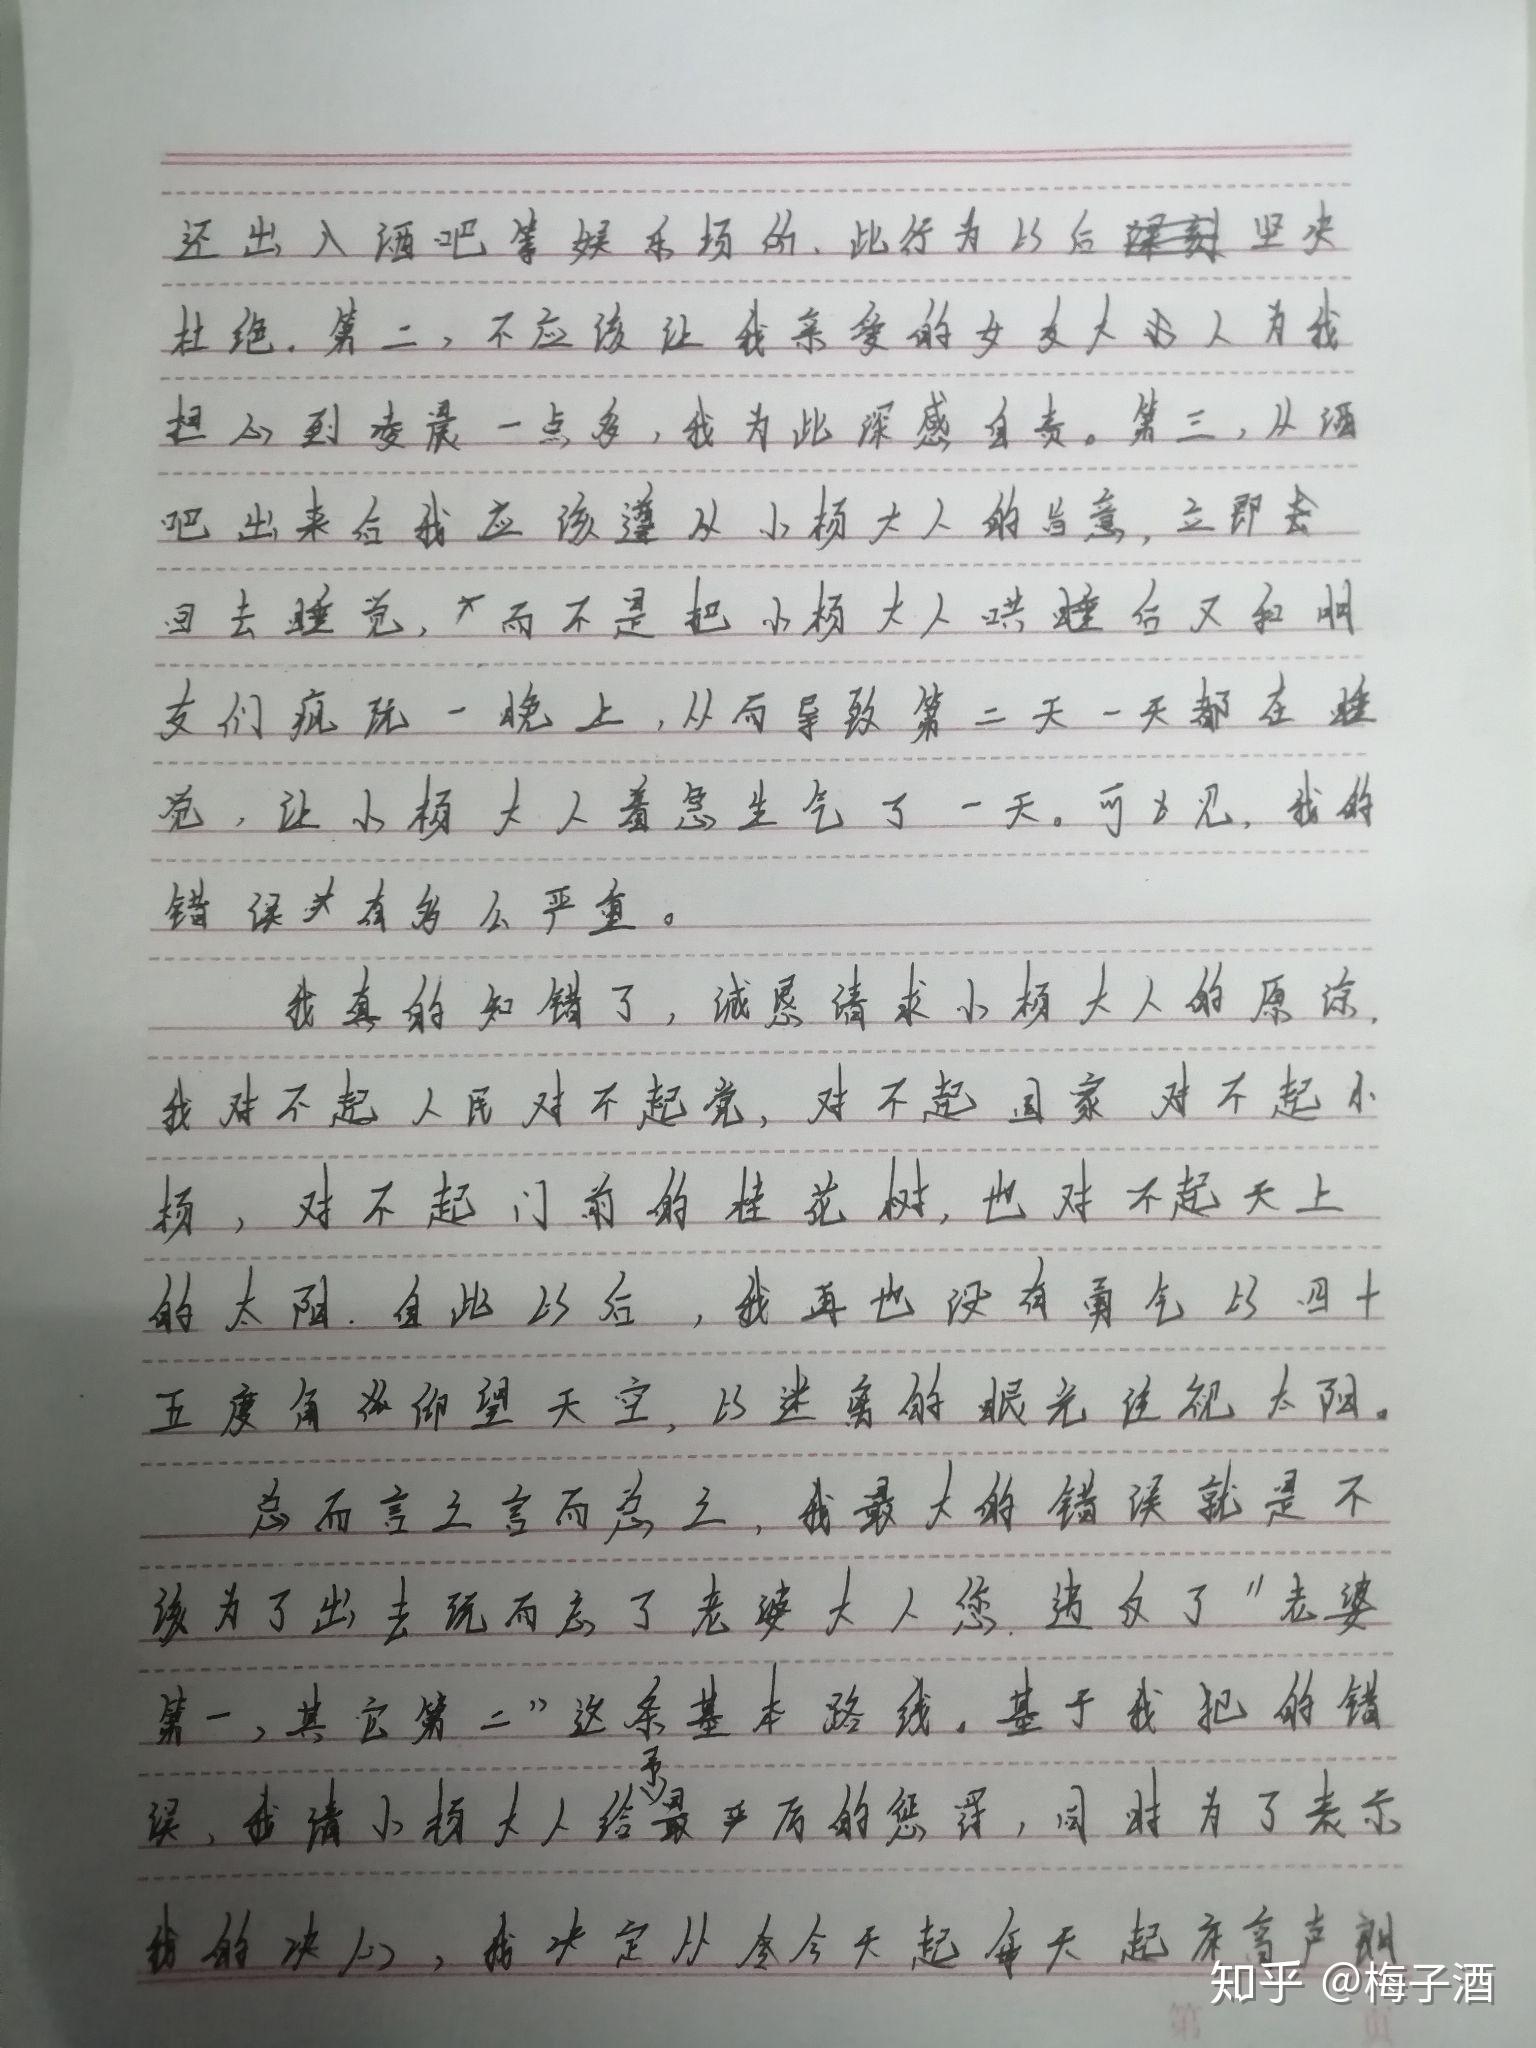 还出入酒吧等娱乐场所，此行为以后坚决
杜绝。第二，不应该让我亲爱的女友大人为我
担心到凌晨一点多，我为此深感自责。第三，从酒
吧出来后我应该遵从小杨大人的旨意，立即去
回去睡觉，而不是把小杨大人哄睡后又和朋
友们疯玩一晚上，从而导致第二天一天都在睡
觉，让小杨大人着急生气了一天。可见，我的
错误有多么严重。
我真的知错了，诚恳请求小杨大人的原谅，
我对不起人民对不起党，对不起国家对不起小
杨，对不起门前的桂花树，也对不起天上
的太阳．自此以后，我再也没有勇气以四十
五度角仰望天空，以迷离的眼光注视太阳。
总而言之言而总之，我最大的错误就是不
该为了出去玩而忘了老婆大人您．违反了"老婆
第一，其它第二"这条基本路线。基于我犯的错
误，我请小杨大人给予最严厉的惩罚，同时为了表示
我的决心，我决定从今天起每天起床高声朗
知乎 @梅子酒
第 页